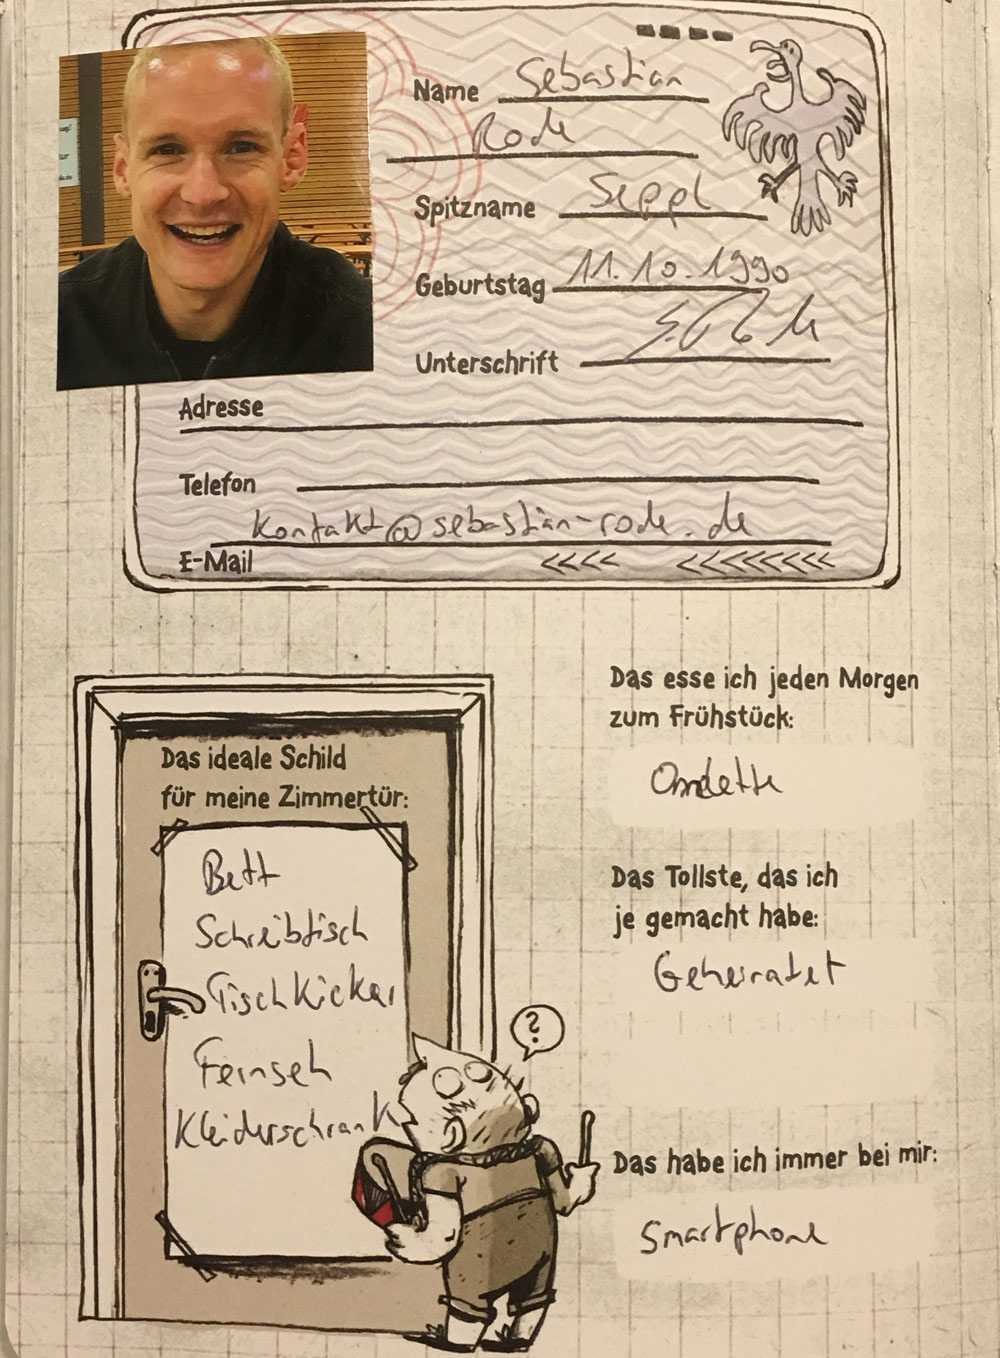 Name Sebastian
Rode
Spitzname Seppl
Geburtstag 11.10.1990
Unterschrift
Adresse
Telefon
kontakt@sebastian-rode.de
E-Mail
Das esse ich jeden Morgen
zum Frühstück:
Omelette
Das ideale Schild
für meine Zimmertür:
Bett
Schreibtisch
Tischkicker
Fernseh
Kleiderschrank
?
Das Tollste, das ich
je gemacht habe:
Geheiratet
Das habe ich immer bei mir:
Smartphone